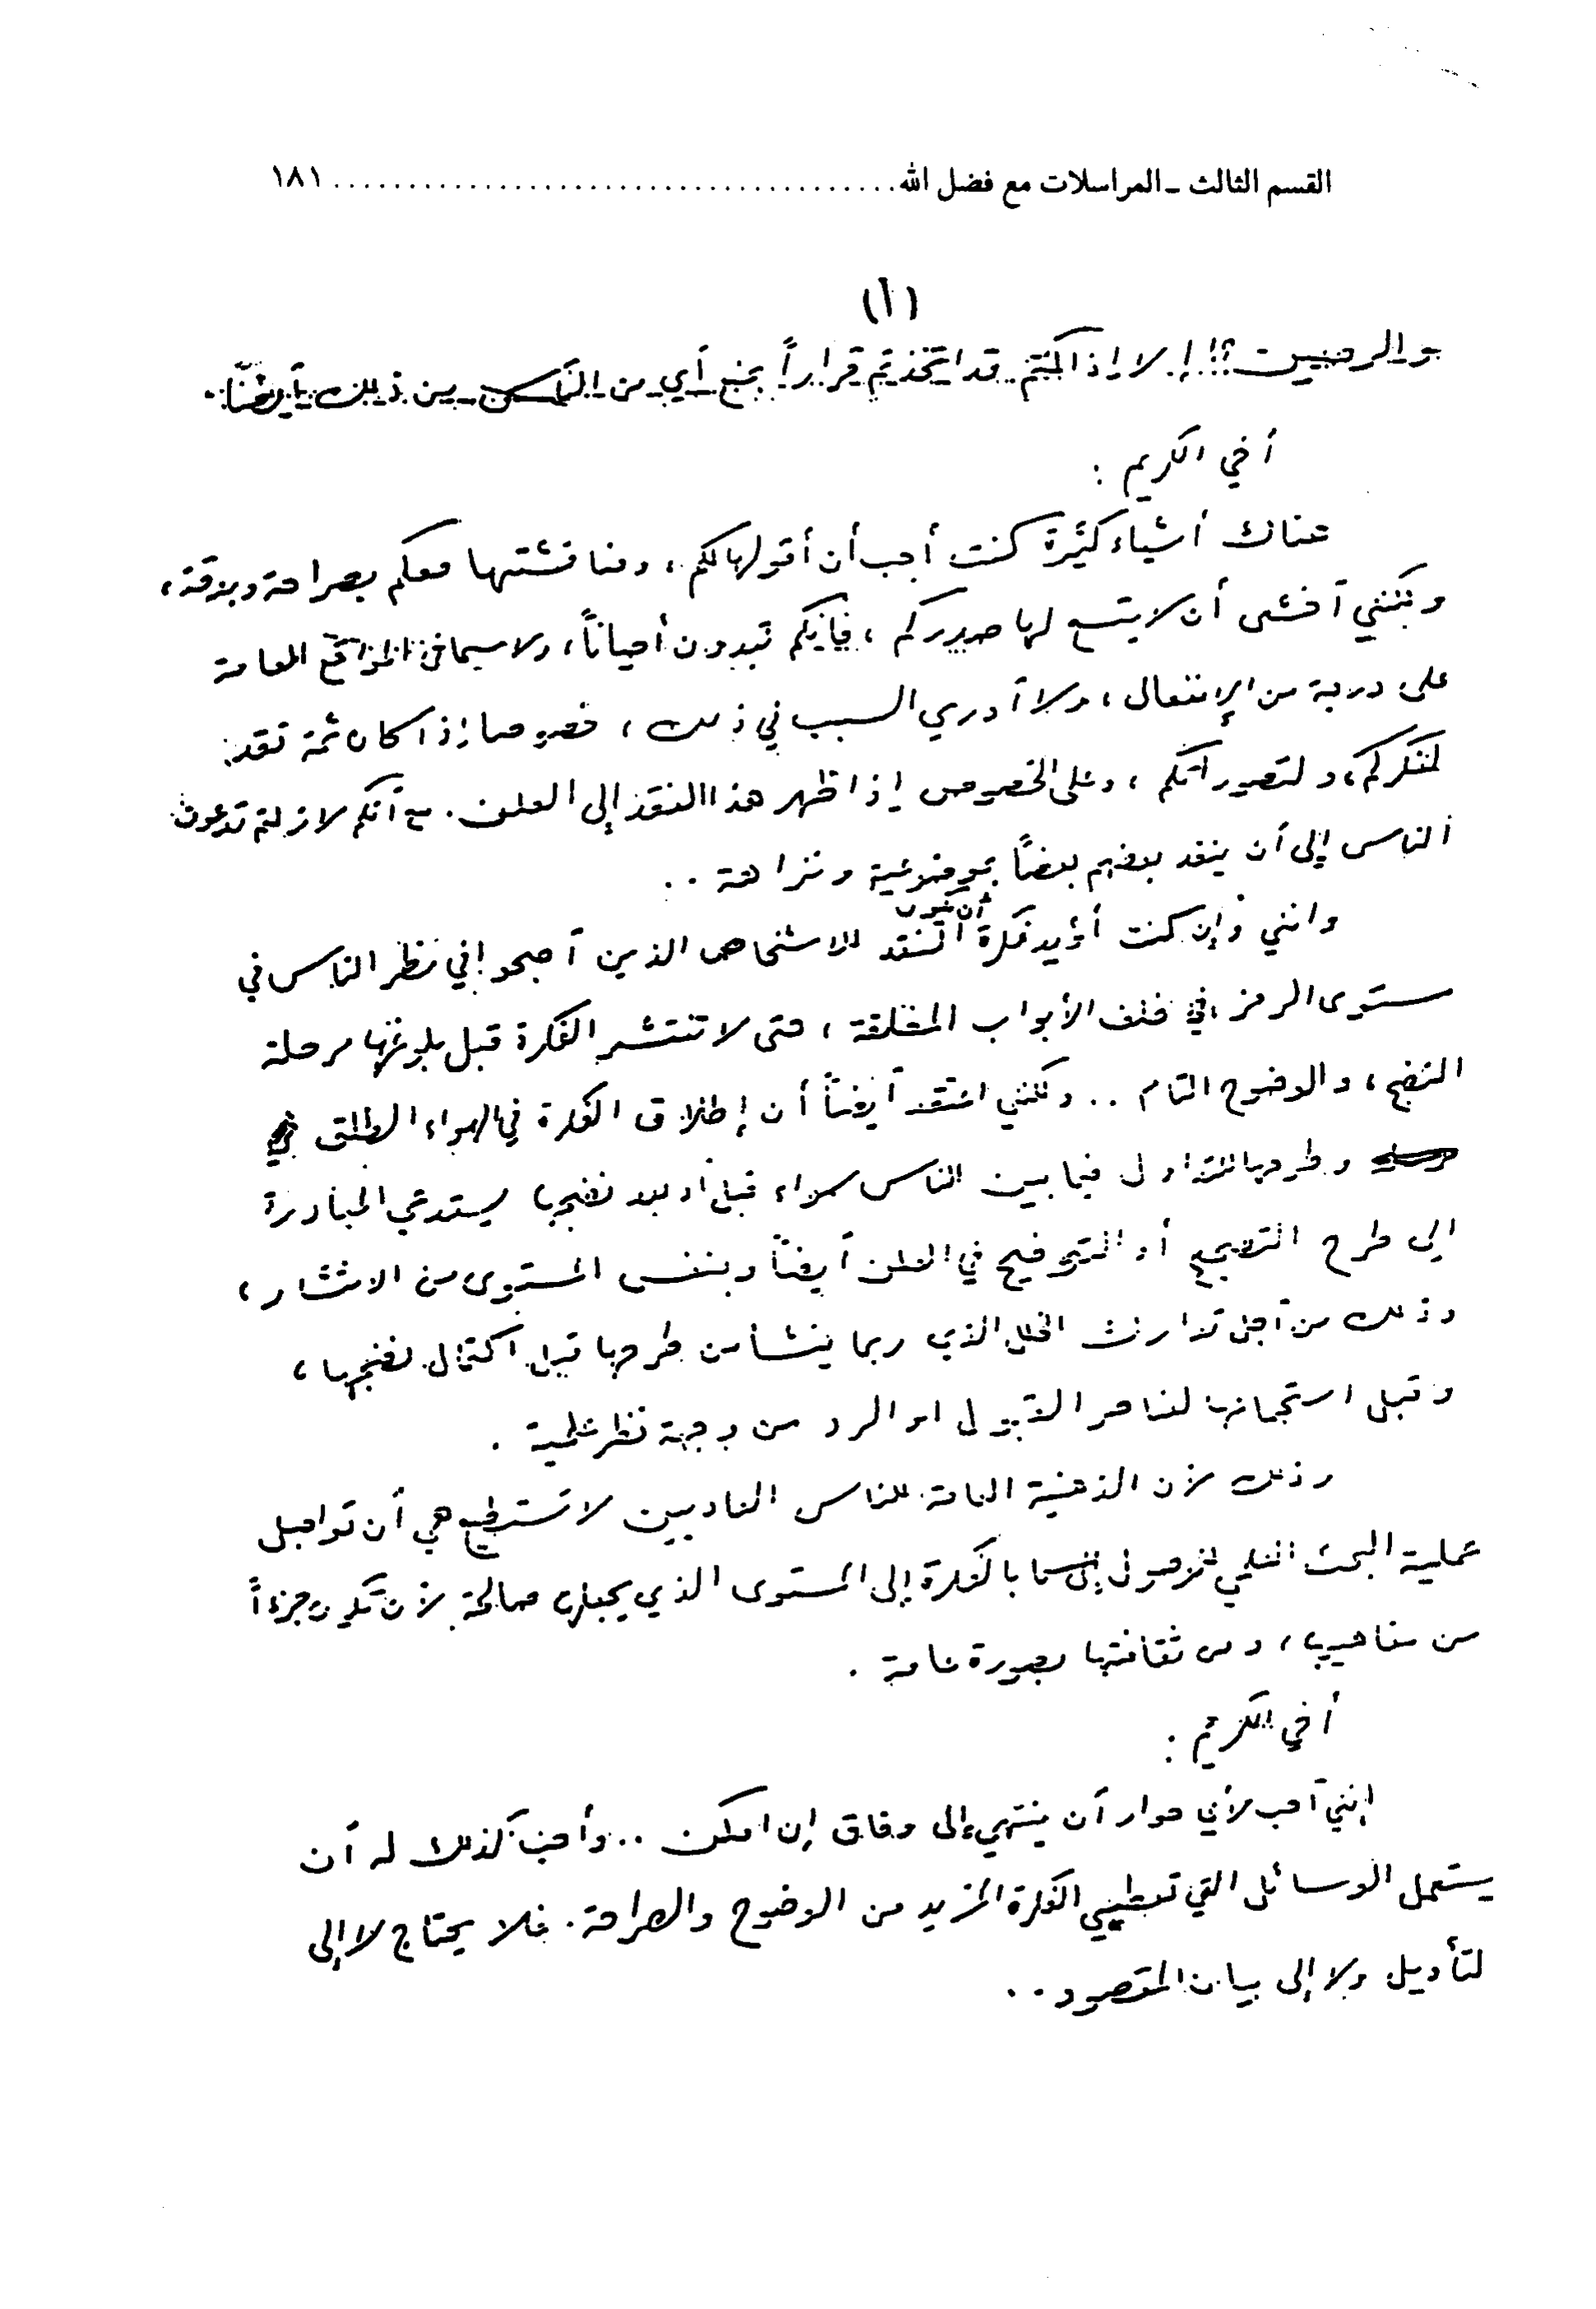 القسم الثالث ـ المراسلات مع فضل الله ........................................ ١٨١
(أ)
والرحيين؟!! إلا إذا كنتم قد اتخذتم قراراً بمنع أي من الناس من ذلك أيضاً.
أخي الكريم :
هناك أشياء كثيرة كنت أحب أن أقولها لكم ، ومناقشتها معكم بصراحة وبدقة ،
ولكنني أخشى أن لا يتسع لها صدركم ، فإنكم تبدون أحياناً ، ولا سيما في المواقع العامة
على درجة من الإنفعال ، ولا أدري السبب في ذلك ، خصوصا إذا كان ثمة نقد
لفكركم ، ولتصوراتكم ، وعلى الخصوص إذا ظهر هذا النقد إلى العلن . مع أنكم لا زلتم تدعون
الناس إلى أن ينقد بعضهم بعضاً بموضوعية ونزاهة ..
وانني وإن كنت أؤيد فكرة أن يكون النقد للاشخاص الذين أصبحوا في نظر الناس في
مستوى الرمز ، في خلف الأبواب المغلقة ، حتى لا تنتشر الفكرة قبل بلوغها مرحلة
النضج ، والوضوح التام .. ولكنني اعتقد أيضاً أن إطلاق الفكرة في الهواء الطلق
وطرحها للتداول فيما بين الناس سواء قبل أو بعد نضجها يستدعي المبادرة
الى طرح التصحيح أو التوضيح في العلن أيضاً وبنفس المستوى من الانتشار ،
وذلك من أجل تدارك الخلل الذي ربما ينشأ من طرحها قبل اكتمال نضجها ،
وقبل استجماعها لعناصر القبول او الرد من وجهة نظر علمية .
وذلك لأن الذهنية العامة للناس العاديين لا تستطيع هي أن تواصل
عملية البحث العلمي للوصول بالفكرة إلى المستوى الذي يجعلها صالحة لأن تكون جزءاً
من مفاهيمها ، ومن ثقافتها بصورة عامة .
أخي الكريم :
إنني أحب لأي حوار أن ينتهي إلى وفاق إن امكن .. وأحب كذلك له أن
يستعمل الوسائل التي تعطي الفكرة المزيد من الوضوح والصراحة . فلا يحتاج لا إلى
لتأويل ولا إلى بيان المقصود ..